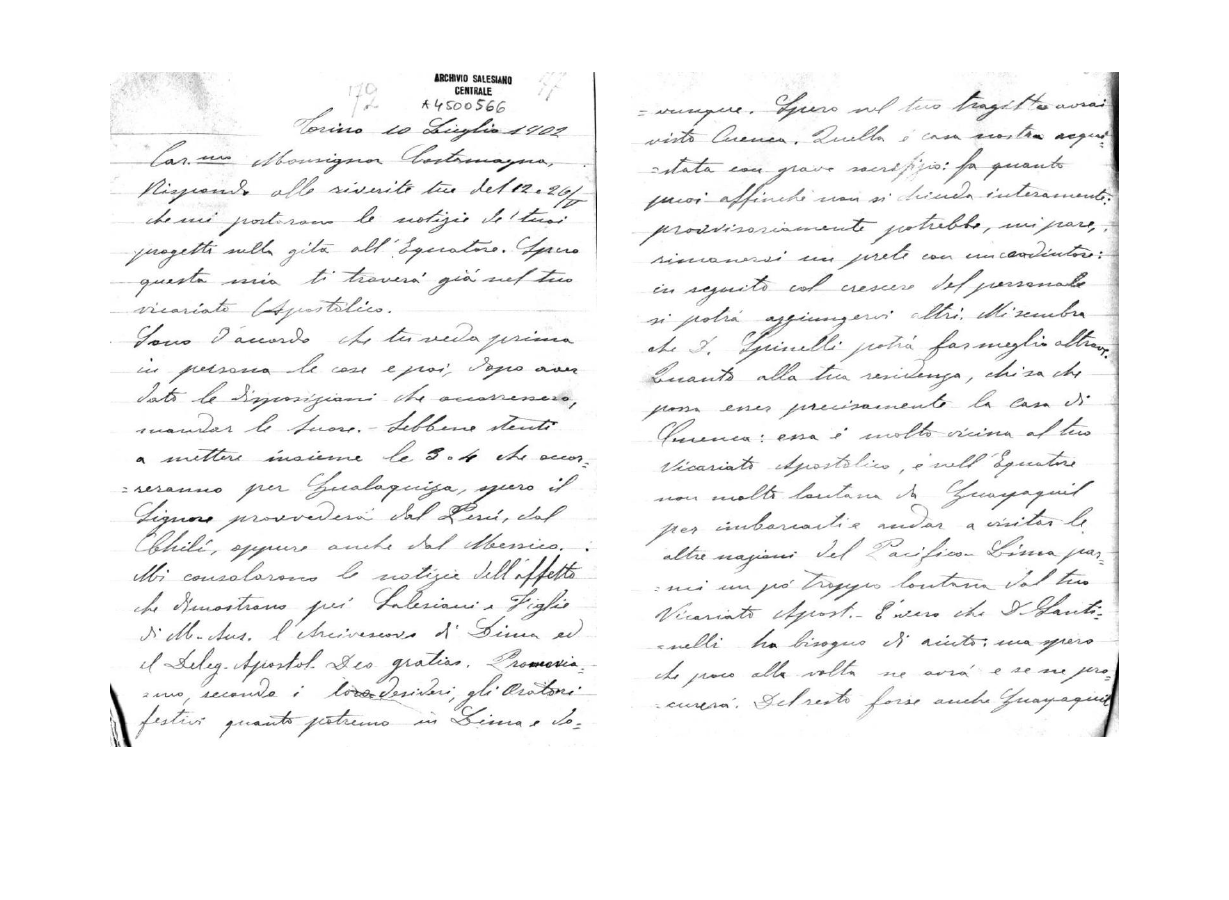 ARCHIVIO SALESIANO
CENTRALE
A4500566
72
77
Torino 10 Luglio 1902
Car.mo Monsignor Costamagna,
Rispondo alle riverite tue del 12 e 26/V
che mi portarono le notizie de' tuoi
progetti nella gita all'Equatore. Spero
questa mia ti troverà già nel tuo
vicariato Apostolico.
Sono d'accordo che tu veda prima
in persona le cose e poi, dopo aver
dato le disposizioni che occorressero,
mandar le Suore. - Sebbene stenti
a mettere insieme le 3 o 4 che occor=
=reranno per Gualaquiza, spero il
Signore provvederà dal Perù, dal
Chilì, oppure anche dal Messico.
Mi consolarono le notizie dell'affetto
che dimostrano pei Salesiani e Figlie
di M. Aus. l'Arcivescovo di Lima ed
il Deleg. Apostol. Deo gratias. Promovia=
=mo, secondo i loro desideri, gli Oratori
festivi quanto potremo in Lima e do=
=vunque. Spero nel tuo tragitto avrai
visto Cuenca. Quella è casa nostra acqui=
=stata con grave sacrifizio: fa quanto
puoi affinchè non si chiuda interamente:
provvisoriamente potrebbe, mi pare,
rimanervi un prete con un coadiutore:
in seguito col crescere del personale
si potrà aggiungervi altri. Mi sembra
che D. Spinelli potrà far meglio altrove.
Quanto alla tua residenza, chi sa che
possa esser precisamente la casa di
Cuenca: essa è molto vicina al tuo
Vicariato Apostolico, è nell'Equatore
non molto lontana da Guayaquil
per imbarcarti e andar a visitar le
altre nazioni del Pacifico. Lima par=
=mi un po' troppo lontana dal tuo
Vicariato Apost. - È vero che D. Santi=
=nelli ha bisogno di aiuto: ma spero
che poco alla volta ne avrà e se ne pro=
=curerà. Del resto forse anche Guayaquil